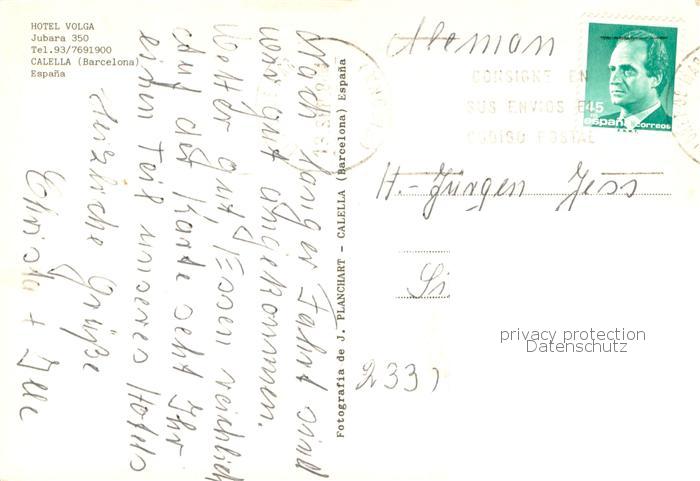 HOTEL VOLGA
Jubara 350
Tel.93/7691900
CALELLA (Barcelona)
España
Nach langer Fahrt sind
wir gut angekommen.
Wetter gut, Essen reichlich
Auf der Karte seht Ihr
einen Teil unseres Hotels
Herzliche Grüße
Christa +
Fotografia de J. PLANCHART - CALELLA (Barcelona) España
Aleman
CONSIGNE EN
SUS ENVIOS E
CODIGO POSTAL
45
españa correos
H.-Jürgen Jess
Si
233
privacy protection
Datenschutz